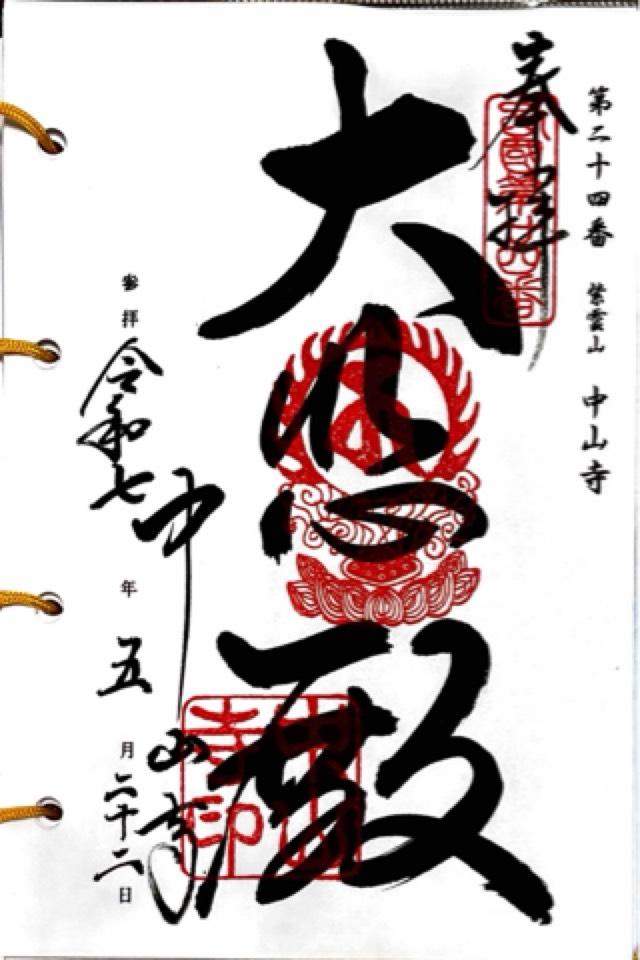 第二十四番 紫雲山 中山寺
奉拝
西国第廿四番
大悲殿
中山寺
中山寺印
参拝 令和七年五月二十二日